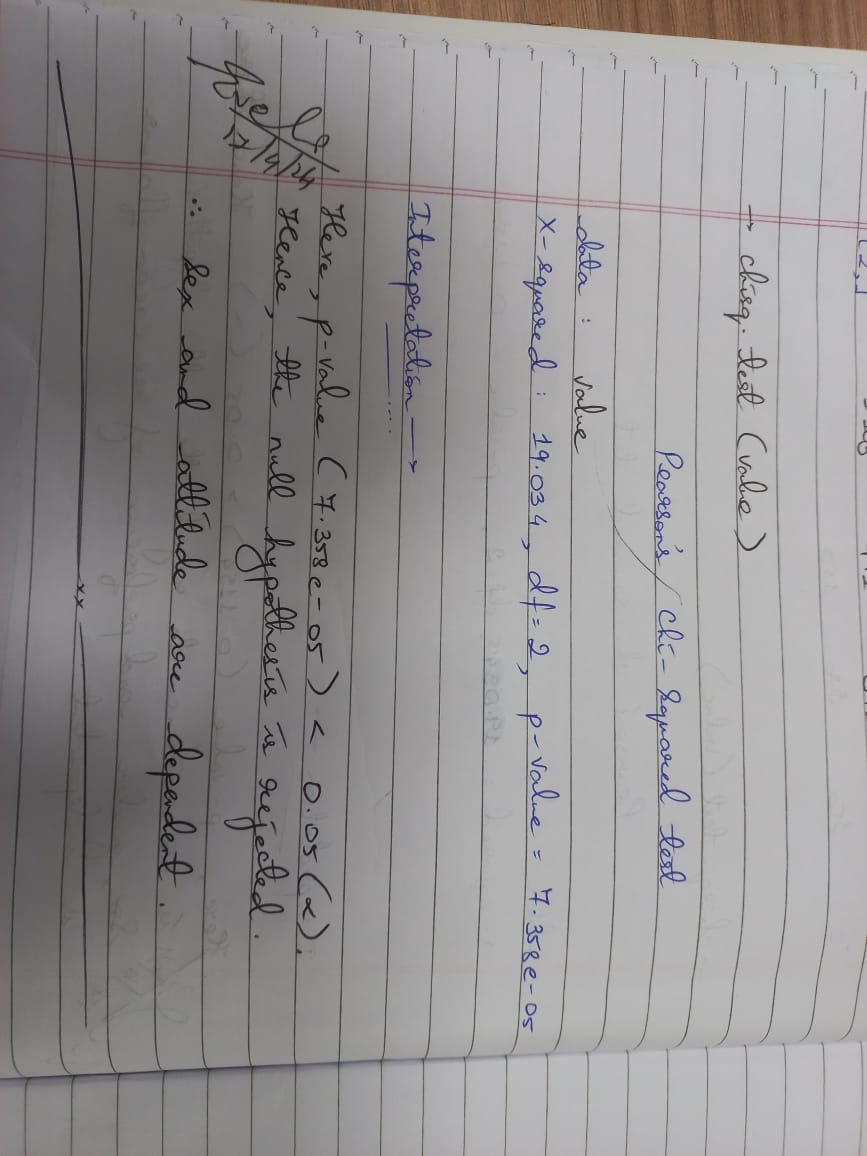 [2,]
→ chisq. test (value)
Pearson's Chi-Squared test
data : value
X-squared : 19.034, df = 2, p-value = 7.358e-05
Interpretation →
Here, p-value (7.358e-05) < 0.05 (α).
Hence, the null hypothesis is rejected.
∴ Sex and attitude are dependent.
xx